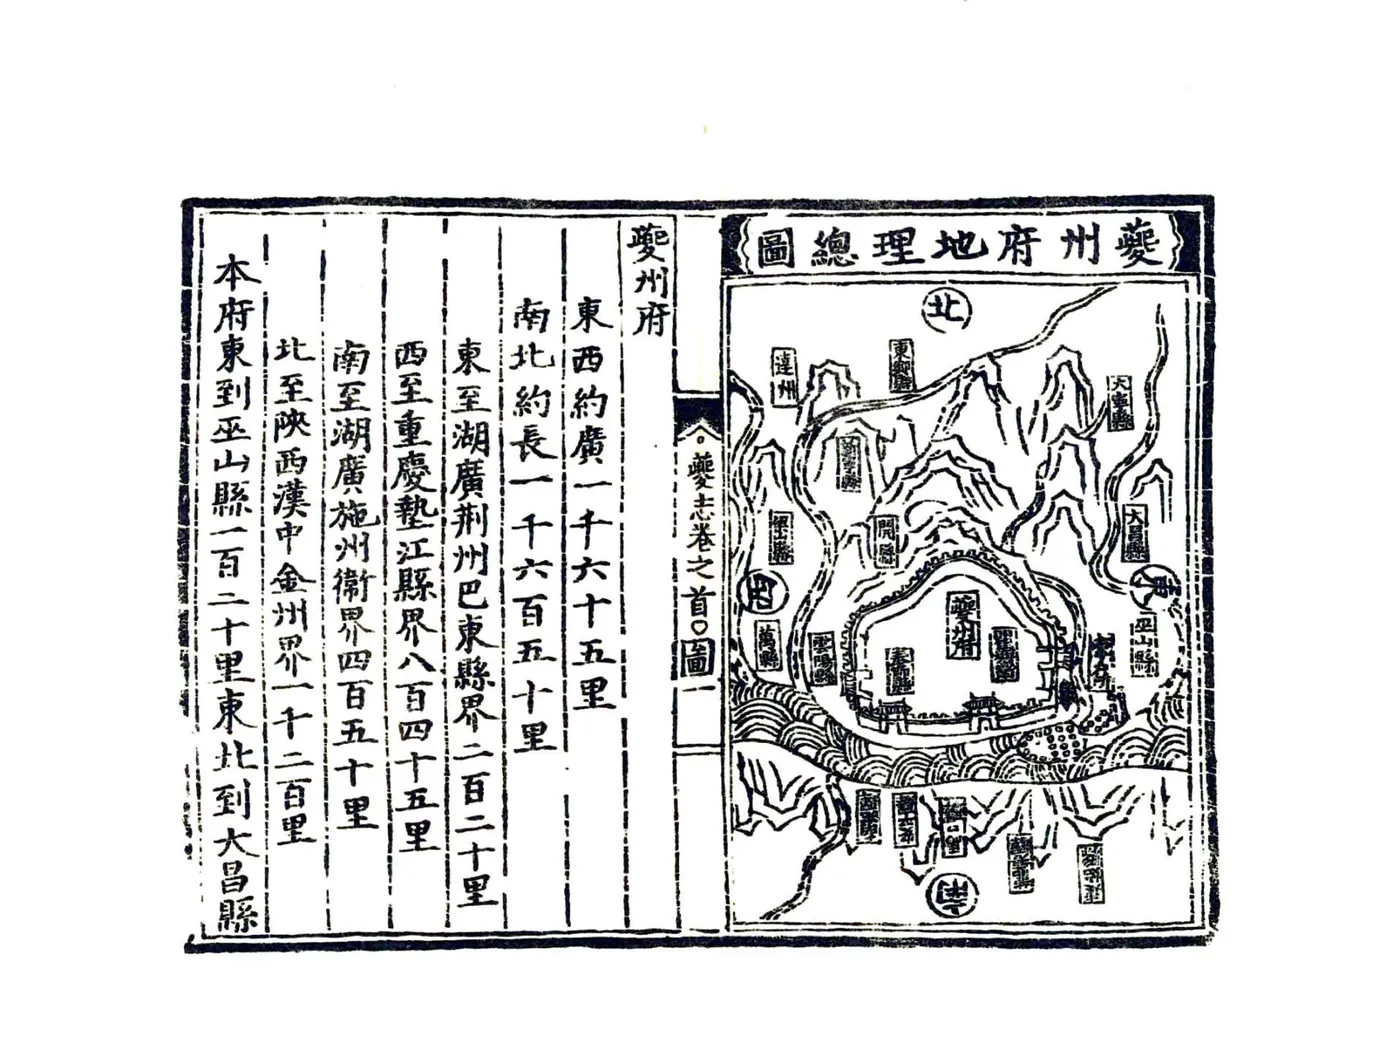 夔州府地理總圖
北
達州
東鄉縣
太平縣
新寧縣
梁山縣
開縣
大昌縣
西
東
萬縣
雲陽縣
夔州府
巫山縣
南
夔志卷之首
圖一
夔州府
東西約廣一千六十五里
南北約長一千六百五十里
東至湖廣荆州巴東縣界二百二十里
西至重慶墊江縣界八百四十五里
南至湖廣施州衛界四百五十里
北至陝西漢中金州界一千二百里
本府東到巫山縣一百二十里東北到大昌縣